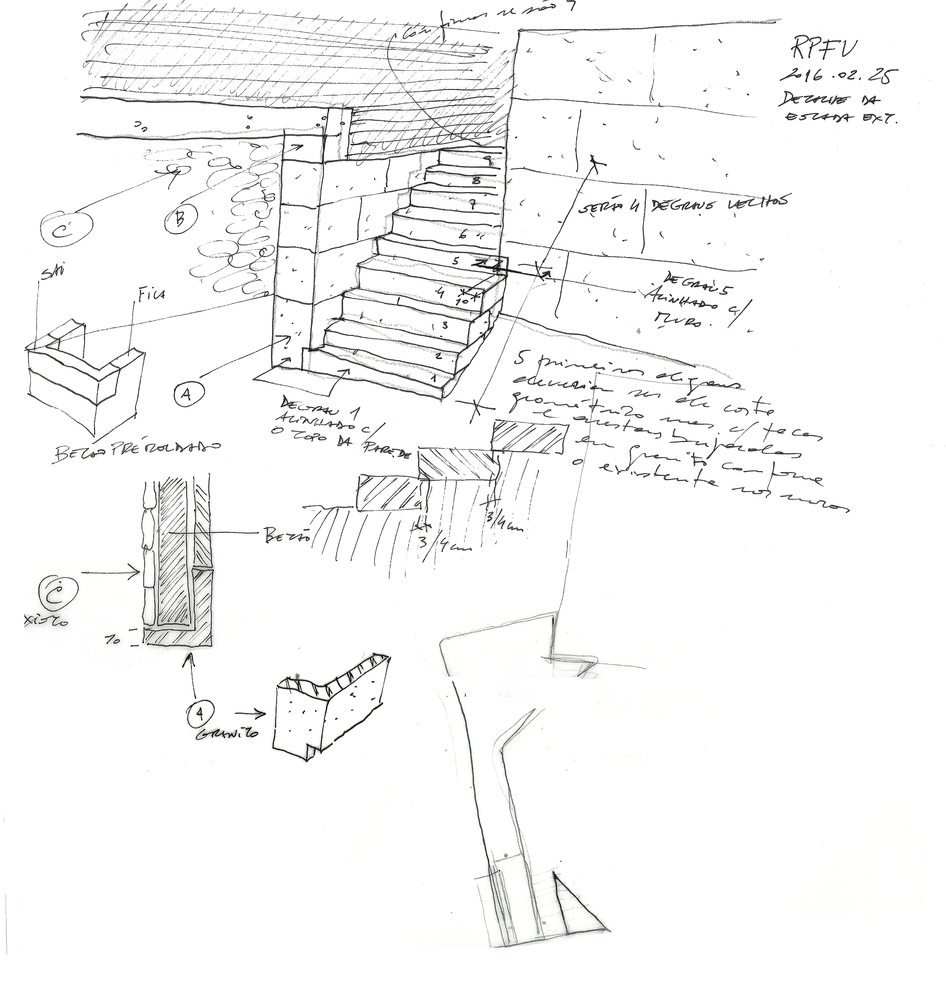 confirmar se são 9
RPFV
2016.02.25
DETALHE DA
ESCADA EXT.
9
8
7
6
5
4
3
2
1
10
SERÃO 4 DEGRAUS VELHOS
DEGRAU 5
ALINHADO C/
MURO.
C
B
SAI
FICA
A
BETÃO PRÉMOLDADO
DEGRAU 1
ALINHADO C/
O TOPO DA PAREDE
5 primeiros degraus
deveriam ser de corte
geométrico mas c/ tocas
e arestas bujardadas
em granito conforme
o existente nos muros
3/4cm
3/4cm
BETÃO
C
XISTO
10
A
GRANITO